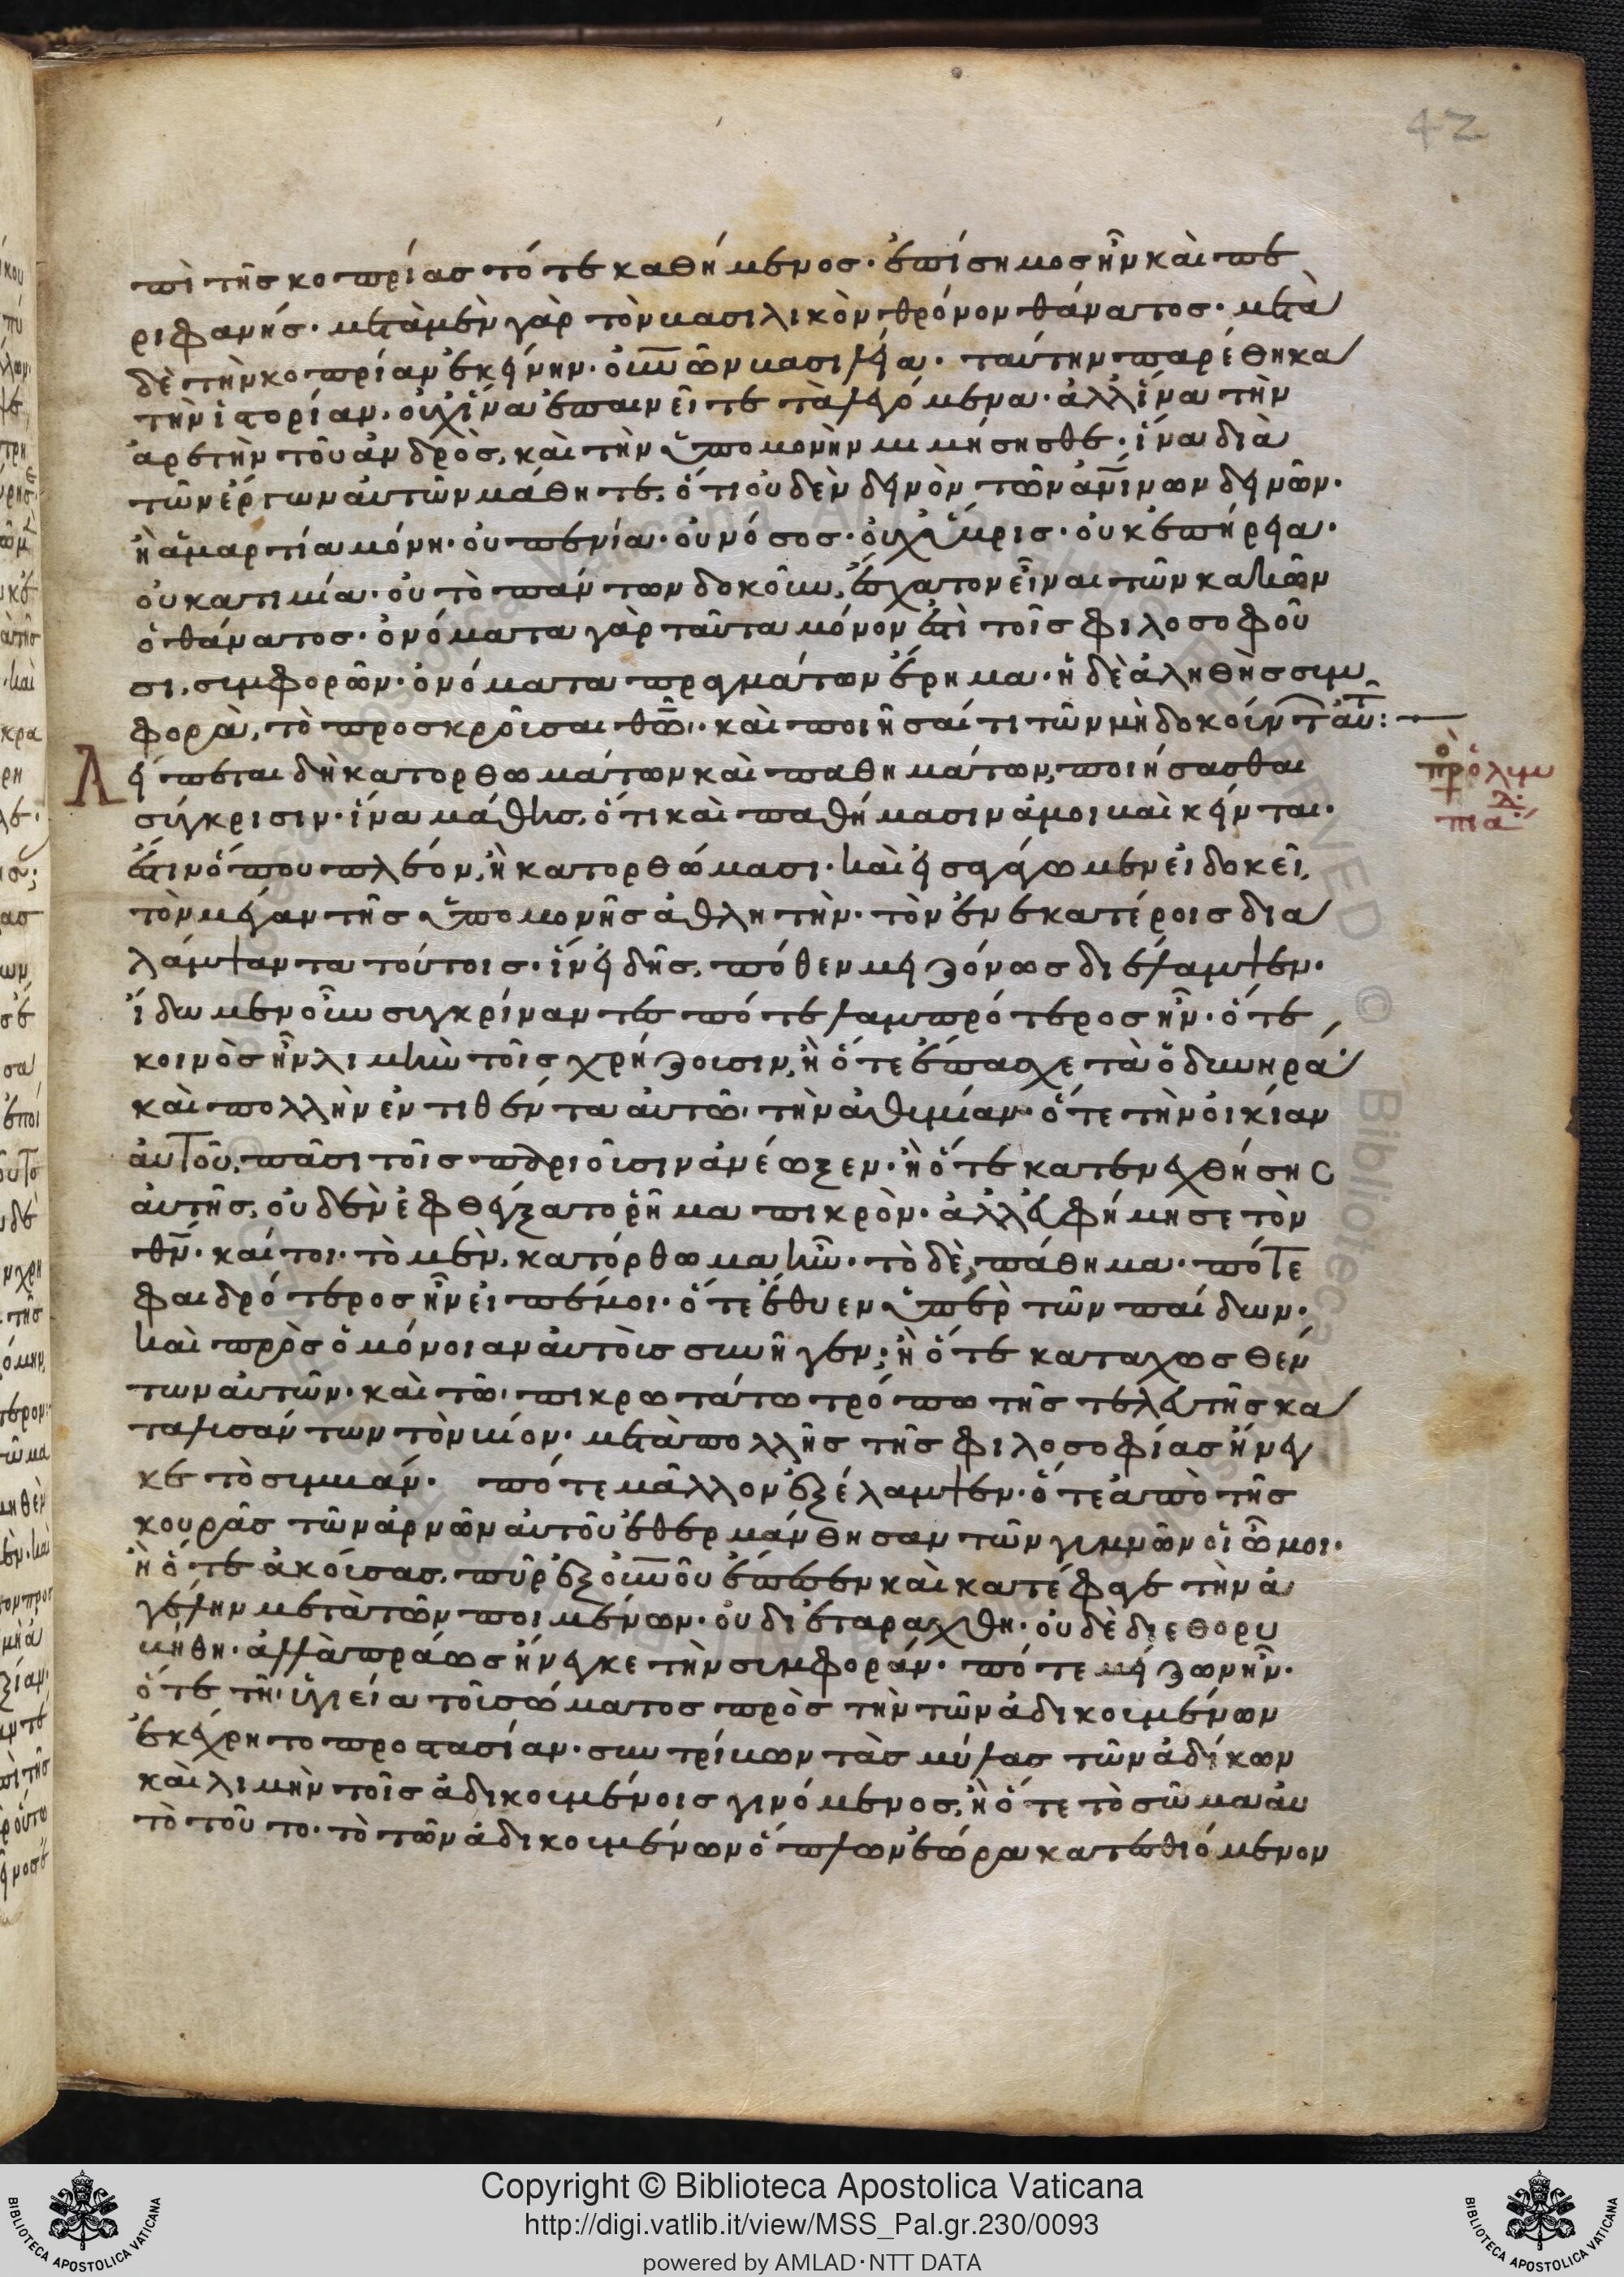 42
πὶ τῆς κοπρίας τότε καθήμενος· ἐπίσημος ἦν καὶ πε
ριφανής· μετὰ μὲν γὰρ τὸν βασιλικὸν θρόνον θάνατος· μετὰ
δὲ τὴν κοπρίαν ἐκείνην· οὐνῶν βασιλεία· ταύτην παρέθηκα
τὴν ἱστορίαν, οὐχ ἵνα ἐπαινεῖτε τὰ λεγόμενα· ἀλλ ἵνα τὴν
ἀρετὴν τοῦ ἀνδρὸς, καὶ τὴν ὑπομονὴν μιμήσησθε· ἵνα διὰ
τῶν ἔργων αὐτῶν μάθητε, ὅτι οὐδὲν δεινὸν τῶν ἀνίνων δεινῶν·
ἢ ἁμαρτία μόνη· οὐ πενία· οὐ νόσος· οὐχ ὕβρις· οὐκ ἐπήρεια·
οὐκ ἀτιμία· οὐ τὸ πάντων δοκοῦν, ἔσχατον εἶναι τῶν κακῶν
ὁ θάνατος· ὀνόματα γὰρ ταῦτα μόνον ἐστὶ τοῖς φιλοσοφοῦ
σι, συμφορῶν· ὀνόματα πραγμάτων ἔρημα· ἡ δὲ ἀληθὴς συμ
φορὰ, τὸ προσκροῦσαι θῶ· καὶ ποιῆσαί τι τῶν μὴ δοκούντ αὐτ:
Λείπεται δὴ κατορθωμάτων καὶ παθημάτων, ποιήσασθαι
πρ ὀλυμ
πια λ
σύγκρισιν· ἵνα μάθης, ὅτι καὶ παθήμασιν ἀμοιβαὶ κεῖνται·
ἔστιν ὅπου πλέον, ἢ κατορθώμασι· καὶ εἰσαγάγωμεν εἰ δοκεῖ,
τὸν μέγαν τῆς ὑπομονῆς ἀθλητὴν· τὸν ἐν ἑκατέροις δια
λάμψαντα τούτοις· ἵν εἰδῆς, πόθεν μειζόνως διέλαμψεν·
ἴδωμεν οὖν συγκρίναντες πότε λαμπρότερος ἦν· ὅτε
κοινὸς ἦν λιμὴν τοῖς χρήζουσιν, ἢ ὅτε ἔπασχε τὰ ὀδυνηρά
καὶ πολλὴν ἐντιθέντα αὐτῶ, τὴν ἀθυμίαν· ὅτε τὴν οἰκίαν
αὐτοῦ, πᾶσι τοῖς παριοῦσιν ἀνέωξεν· ἢ ὅτε κατενεχθήσης
αὐτῆς, οὐδὲν ἐφθέγξατο ῥῆμα πικρὸν· ἀλλ εὐφήμησε τὸν
θν· καίτοι· τὸ μὲν, κατόρθωμα ἦν· τὸ δὲ, πάθημα· πότε
φαιδρότερος ἦν εἰπέ μοι· ὅτε ἔθυεν ὑπὲρ τῶν παίδων·
καὶ πρὸς ὁμόνοιαν αὐτοὺς συνῆγεν; ἢ ὅτε καταχωσθέν
των αὐτῶν· καὶ τῶ πικρωτάτω τρόπω τῆς τελευτῆς κα
ταλυσάντων τὸν βίον· μετὰ πολλῆς τῆς φιλοσοφίας ἤνεγ
κε τὸ συμβάν· πότε μᾶλλον ἐξέλαμψεν· ὅτε ἀπὸ τῆς
κουρᾶς τῶν ἀρνῶν αὐτοῦ ἐθερμάνθησαν τῶν γυμνῶν οἱ ὦμοι·
ἢ ὅτε ἀκούσας, πῦρ ἐξ οὐνοῦ ἔπεσεν καὶ κατέφαγε τὴν ἀ
γέλην μετὰ τῶν ποιμένων· οὐ διεταράχθη· οὐδὲ διεθορυ
βήθη· ἀλλὰ πράως ἤνεγκε τὴν συμφοράν· πότε μείζων ἦν·
ὅτε τῆ ὑγιεία τοῦ σώματος πρὸς τὴν τῶν ἀδικουμένων
ἐκέχρητο προστασίαν· συντρίβων τὰς μύλας τῶν ἀδίκων
καὶ λιμὴν τοῖς ἀδικουμένοις γινόμενος, ἢ ὅτε τὸ σῶμα αὐ
τὸ τοῦτο· τὸ τῶν ἀδικουμένων ὅπλων ἑώρα κατεσθιόμενον
Copyright © Biblioteca Apostolica Vaticana
http://digi.vatlib.it/view/MSS_Pal.gr.230/0093
powered by AMLAD·NTT DATA